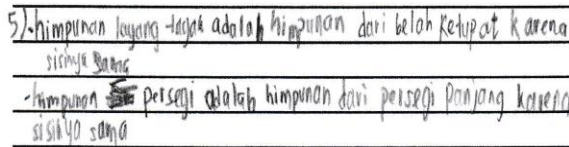 5).-himpunan layang-layak adalah himpunan dari belah ketupat karena
sisinya sama
-himpunan persegi adalah himpunan dari persegi panjang karena
sisinya sama